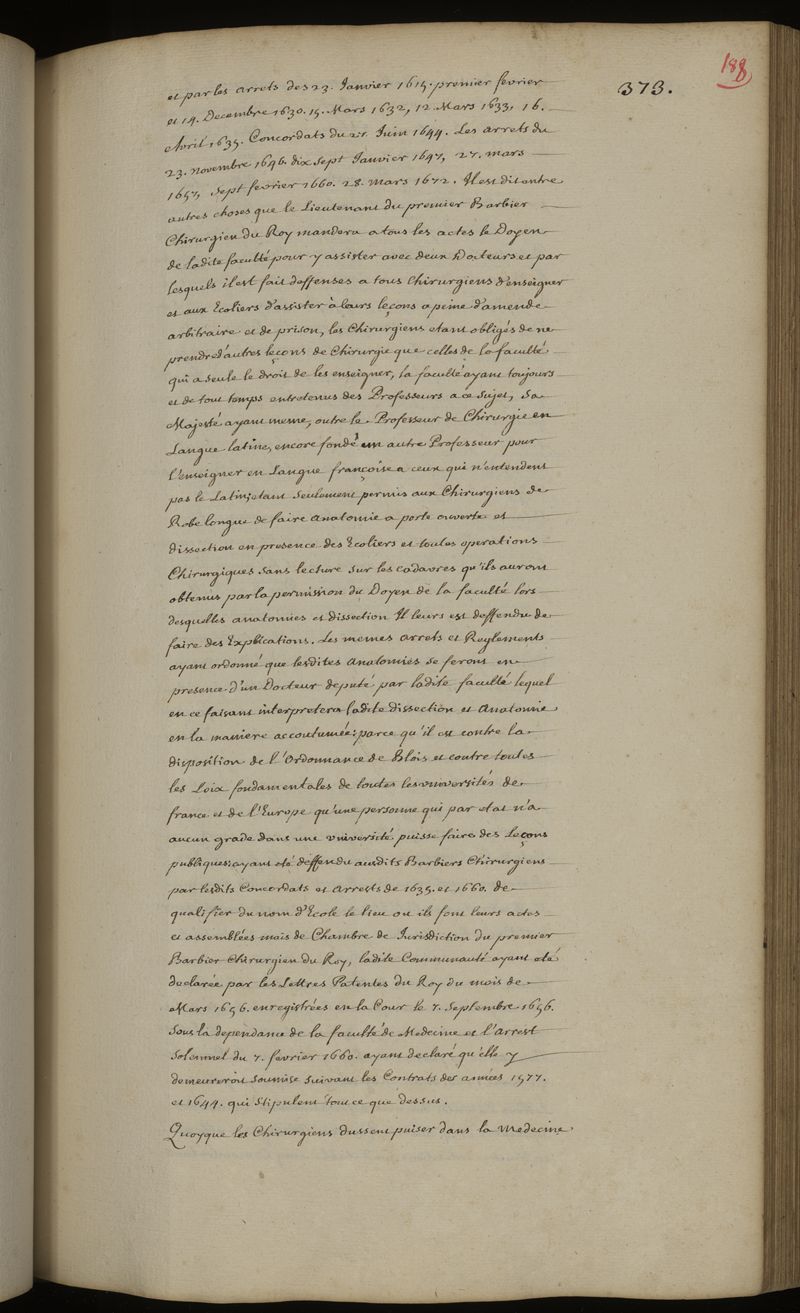 188
373.
et par les arrets des 23. Janvier 1615. premier fevrier
et 14. Decembre 1630. 15. Mars 1632, 12. Mars 1633, 16.
Avril 1635. Concordats du 21. Juin 1644. Les arrets du
23. novembre 1646. dix sept Janvier 1647, 27. mars
1657, sept fevrier 1660. 28. mars 1672. Il est dit entre
autres choses que le Lieutenant du premier Barbier
Chirurgien du Roy mandera a tous les actes le Doyen
de ladite faculté pour y assister avec deux Docteurs et par
lesquels il est fait deffenses a tous Chirurgiens d'enseigner
et aux Ecoliers d'assister à leurs leçons a peine d'amende
arbitraire et de prison, les Chirurgiens etant obligés de ne
prendre d'autres leçons de Chirurgie que celles de la faculté
qui a seule le droit de les enseigner, la faculté ayant toujours
et de tout temps entretenus des Professeurs a ce sujet, Sa
Majesté ayant meme, outre le Professeur de Chirurgie en
Langue latine, encore fondé un autre Professeur pour
l'enseigner en Langue françoise a ceux qui n'entendent
pas le Latin; etant seulement permis aux Chirurgiens de
Robe longue de faire anatomie a porte ouverte et
dissection en presence des Ecoliers et toutes operations
Chirurgiques sans lecture sur les cadavres qu'ils auront
obtenus par la permission du Doyen de la faculté lors
desquelles anatomies et dissection Il leurs est deffendu de
faire des Explications. Les memes arrets et Reglements
ayant ordonné que lesdites anatomies se feront en
presence d'un Docteur deputé par ladite faculté lequel
en ce faisant interpretera ladite dissection et anatomie
en la maniere accoutumée: parce qu'il est contre la
disposition de l'Ordonnance de Blois et contre toutes
les Loix fondamentales de toutes les universités de
france et de l'Europe qu'une personne qui par etat n'a
aucun grade dans une université puisse faire des Leçons
publiques: ayant eté deffendu ausdits Barbiers Chirurgiens
par lesdits Concordats et Arrests de 1635. et 1660. de
qualifier du nom d'Ecole le lieu ou ils font leurs actes
et assemblées mais de Chambre de Jurisdiction du premier
Barbier Chirurgien du Roy, ladite Communauté ayant eté
declarée par les Lettres Patentes du Roy du mois de
Mars 1656. enregistrées en la Cour le 7. Septembre 1656.
sous la dependance de la faculté de Medecine et l'Arrest
solemnel du 7. fevrier 1660. ayant declaré qu'elle y
demeureroit soumise suivant les Contrats des années 1577.
et 1644. qui stipulent tout ce que dessus.
Quoyque les Chirurgiens dussent puiser dans la Medecine